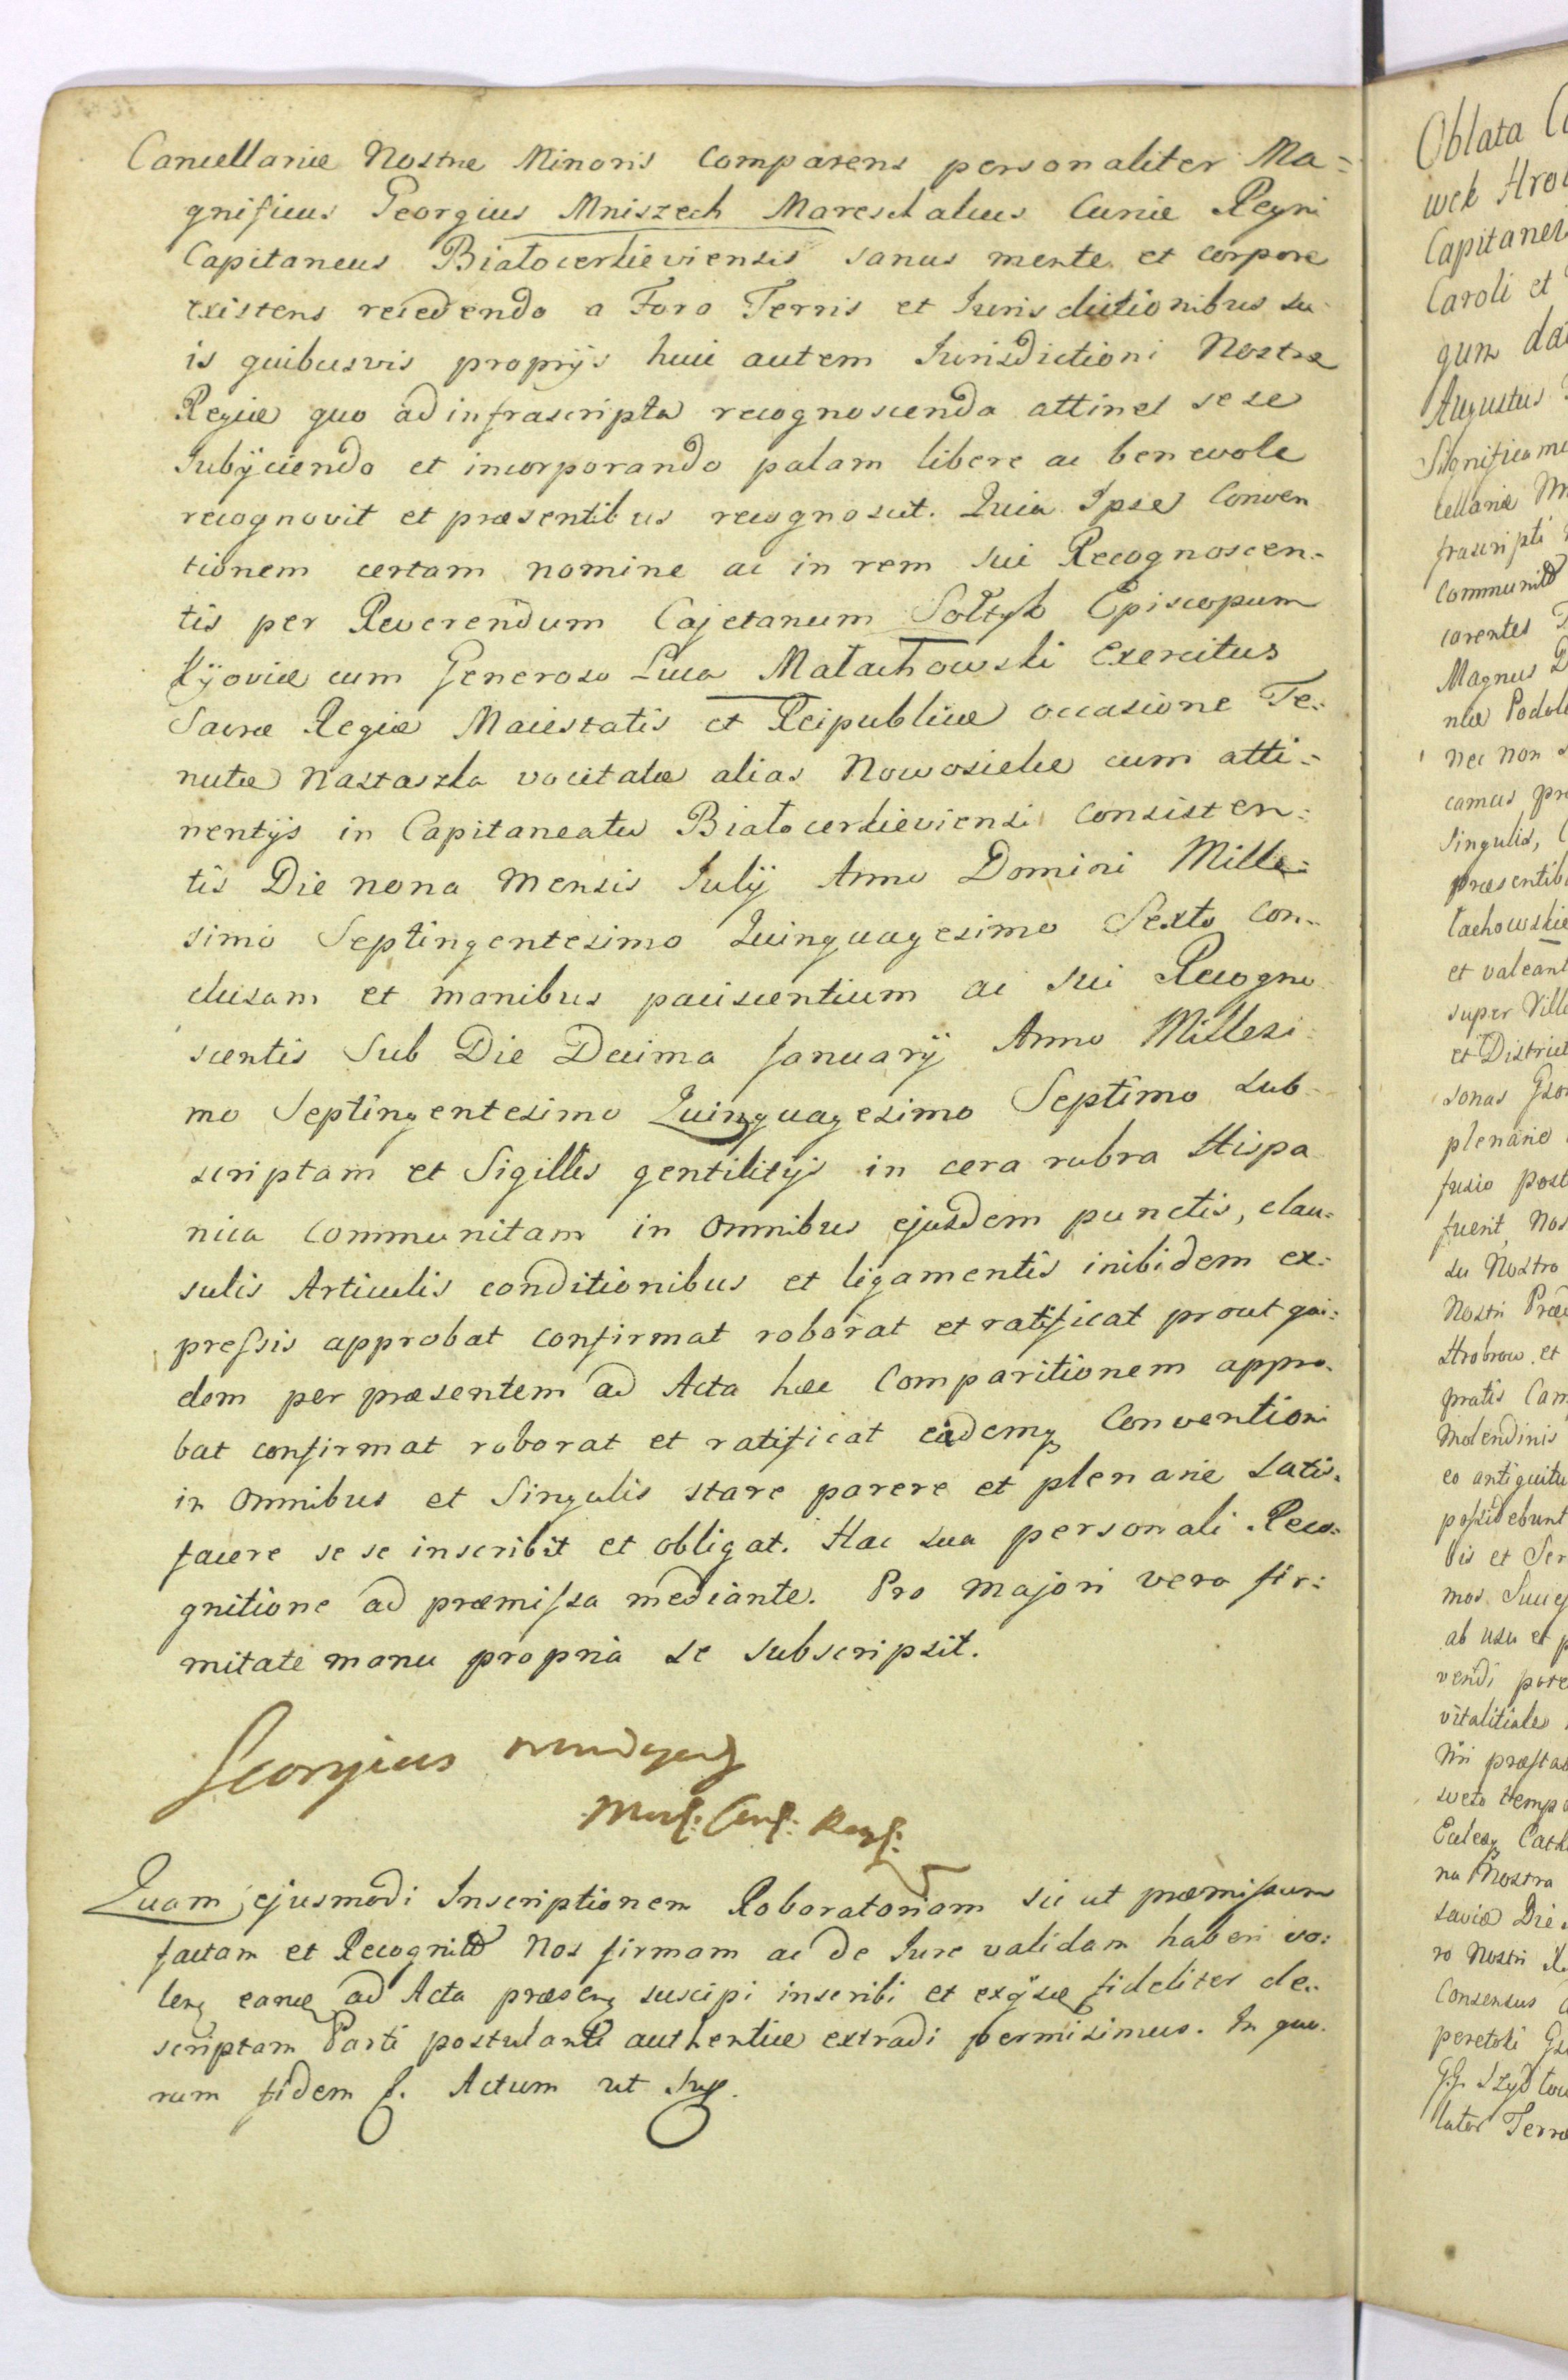 Cancellariæ Nostræ Minoris Comparens personaliter Ma=
gnificus Georgius Mniszech Mareschalcus Curiæ Regni
Capitaneus Białocerkieviensis sanus mente et corpore
existens recedendo a Foro Terris et Jurisdictionibus su
is quibusvis proprijs huic autem Jurisdictioni Nostræ
Regiæ quo ad infrascripta recognoscenda attinet sese
Subijciendo et incorporando palam libere ac benevole
recognovit et præsentibus recognoscit. Quia Ipse Conven
tionem certam nomine ac in rem sui Recognoscen=
tis per Reverendum Cajetanum Sołtyk Episcopum
Kijoviæ cum Generoso Luca Małachowski Exercitus
Sacræ Regiæ Maiestatis et Reipublicæ occasione Te=
nutæ Nastaszka vocitatæ alias Nowosielce cum atti=
nentijs in Capitaneatu Białocerkieviensi Consisten=
tis Die nona Mensis Julij Anno Domini Mille=
simo Septingentesimo Quinquagesimo Sexto Con=
clusam et manibus paciscentium ac sui Recogno
scentis Sub Die Decima Januarij Anno Millesi
mo Septingentesimo Quinquagesimo Septimo sub
scriptam et Sigillis gentilitijs in cera rubra Hispa
nica Communitam in Omnibus ejusdem punctis, clau=
sulis Articulis conditionibus et ligamentis inibidem ex=
pressis approbat confirmat roborat et ratificat prout qui=
dem per præsentem ad Acta hæc Comparitionem appro=
bat confirmat roborat et ratificat eidemq Conventioni
in Omnibus et Singulis stare parere et plenarie satis=
facere se se inscribit et obligat. Hac sua personali Reco=
gnitione ad præmissa mediante. Pro majori vero fir=
mitate manu propria se subscripsit.
Georgius Mniszech
Quam ejusmodi Inscriptionem Roboratoriam sic ut præmissum
factam et Recognit Nos firmam ac de Jure validam haberi vo=
leng ad Acta præseng suscipi inscribi et fideliter de=
scriptam Parti postulanti authentice extradi permisimus. In quo
rum fidem Actum ut Sup.
Oblata
wek
Capitanei
Caroli et
gum
Augustus
Significamus
cellariæ
frascripti
Communit
carentes
Magnus
niæ
nec non
camus
Singulis,
præsentib
et valeant
super
et District
sonas
plenarie
fusio
fuerit, Nos
su Nostro
Nostri
et
pratis
Molendinis
eo antiquitu
possidebunt
et
mos
ab usu et
vendi
vitalitiales
sueto
na Nostra
Die
ro Nostri
Consensus